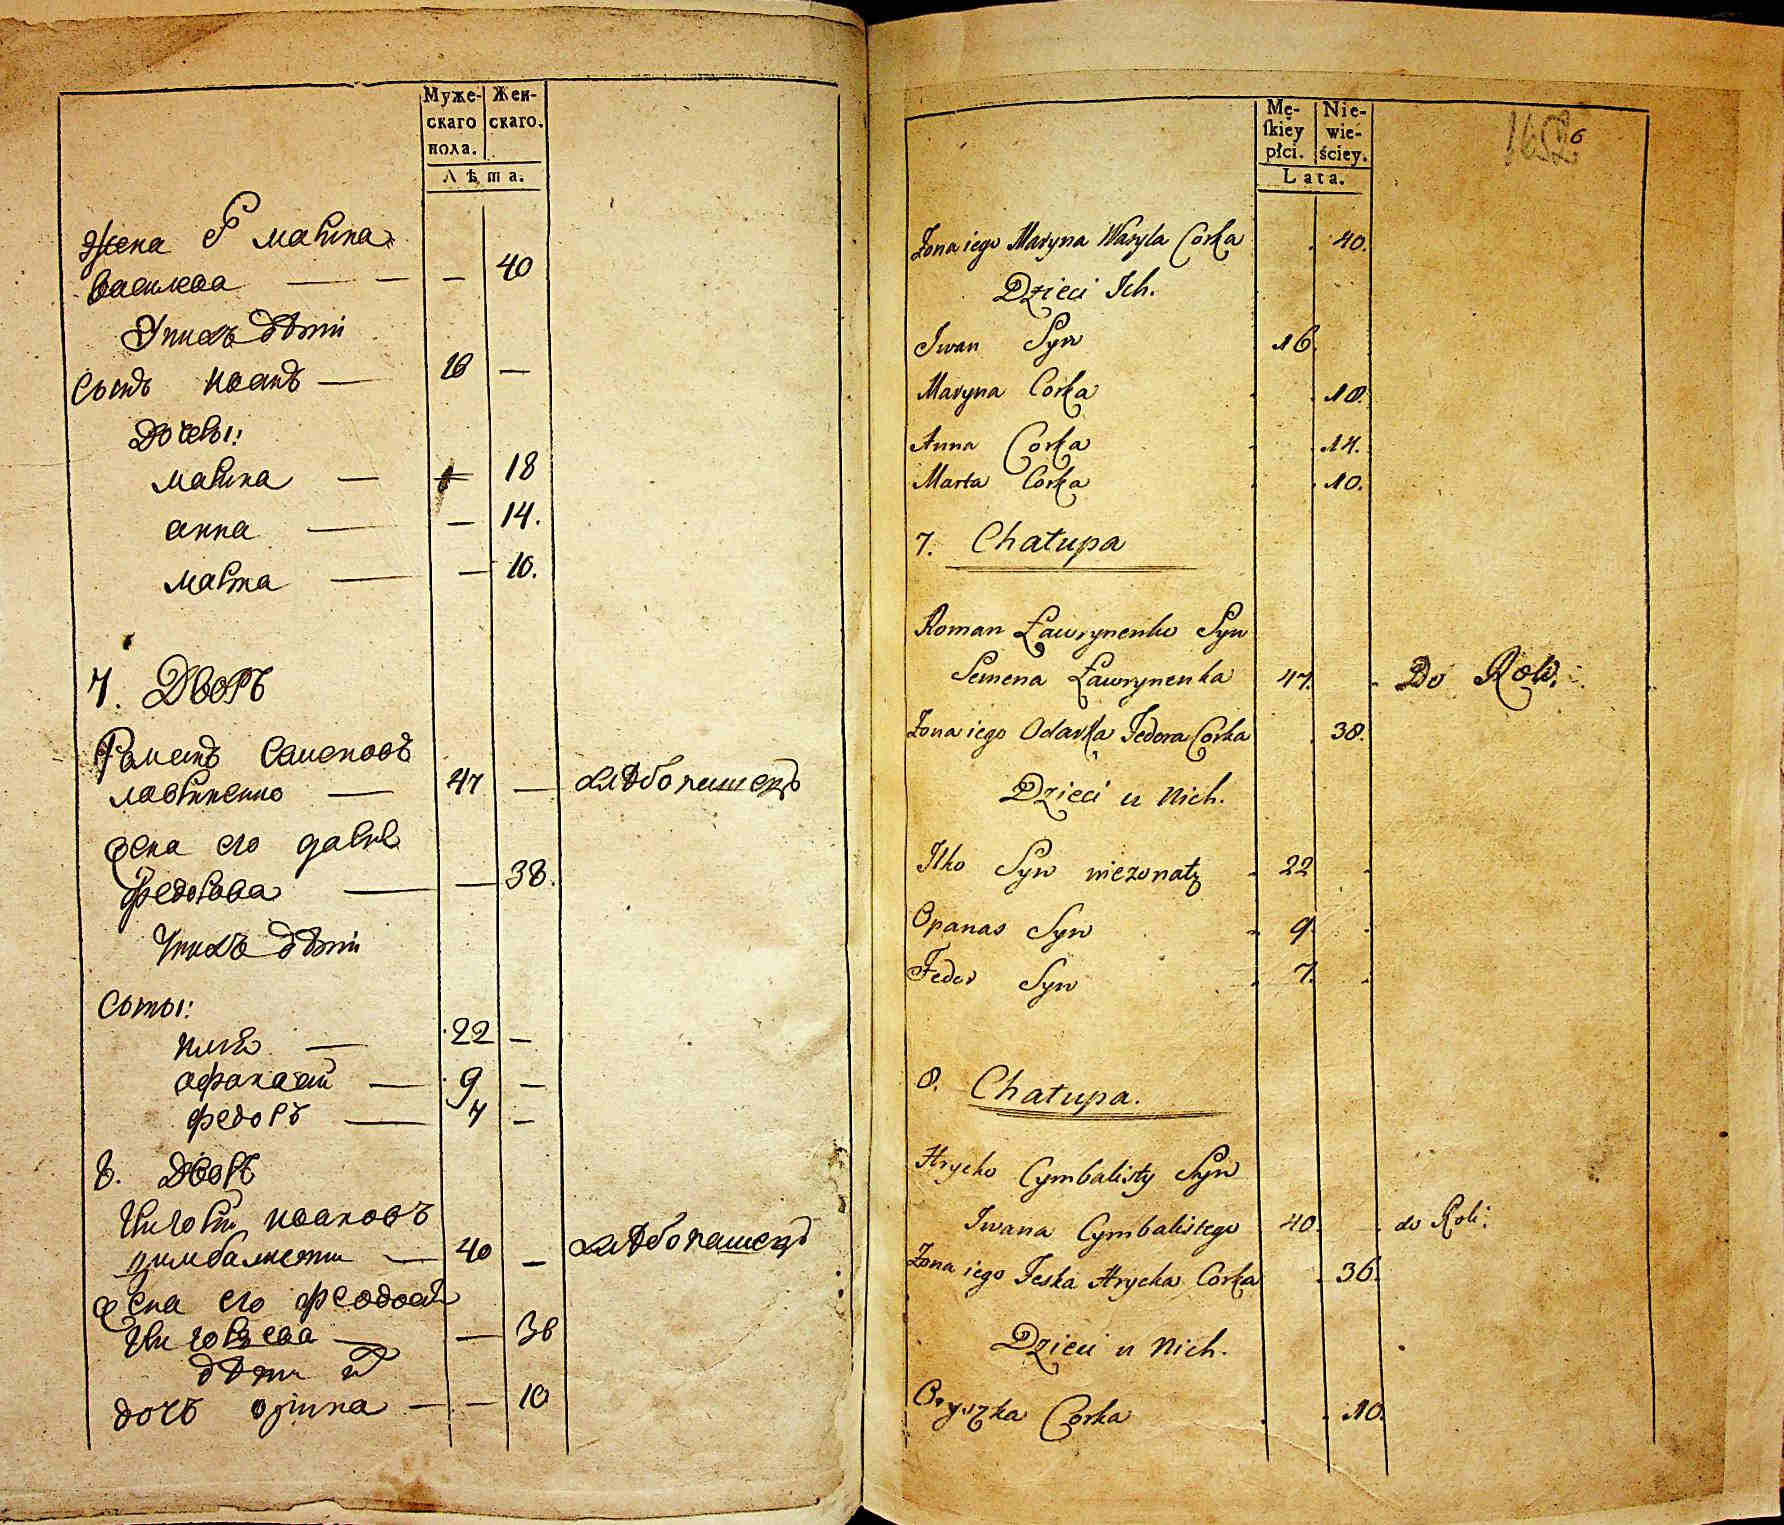 Муже- Жен-
скаго скаго.
пола.
Лѣта.
Жена Его марина
василева — — 40
Уних дѣти
Сынъ иванъ — 16 —
Дочеры:
марина — 18
анна — — 14.
марта — — 10.
7. Дворъ
Романъ Семеновъ
лавриненко — 47 — хлѣбопашецъ
жена его
федорова — — 38.
Уних дѣти
Сыны:
илья — 22 —
афанасий — 9 —
федоръ — 7 —
8. Дворъ
Григорий ивановъ
цимбалистий — 40 — хлѣбопашецъ
жена его феодосия
Григориева — — 36
дѣти их
дочь орина — — 10
Mę- Nie-
skiey wie-
płci. ściey.
Lata.
Zona iego Maryna Wasyla Corka 40.
Dzieci Ich.
Iwan Syn 16.
Maryna Corka 18.
Anna Corka 14.
Marta Corka 10.
7. Chałupa
Roman Ławrynenko Syn
Semena Ławrynenka 47. Do Roli.
Zona iego Odarka Fedora Corka 38.
Dzieci u Nich.
Ilko Syn niezonaty 22
Opanas Syn 9
Fedor Syn 7.
8. Chałupa.
Hrycko Cymbalisty Syn
Iwana Cymbalistego 40. do Roli.
Zona iego Feska Hrycka Corka 36.
Dzieci u Nich.
Oryszka Corka 10.